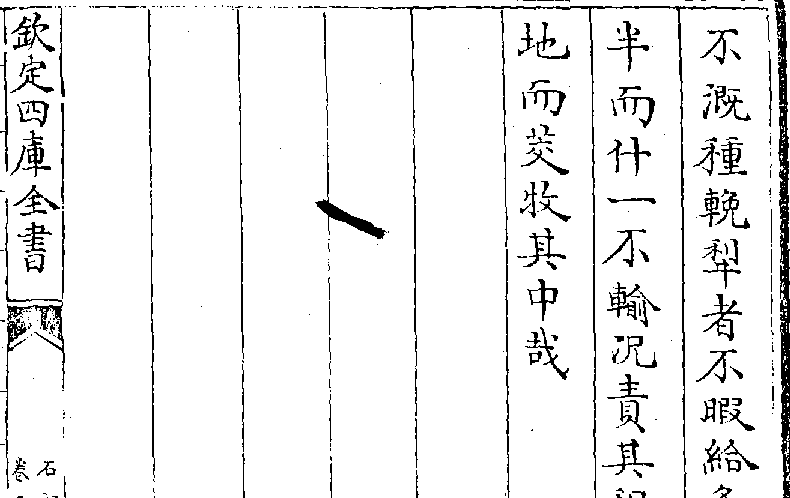 不溉種輓犁者不暇給
半而什一不輸况責其
地而茭牧其中哉
欽定四庫全書
石
卷